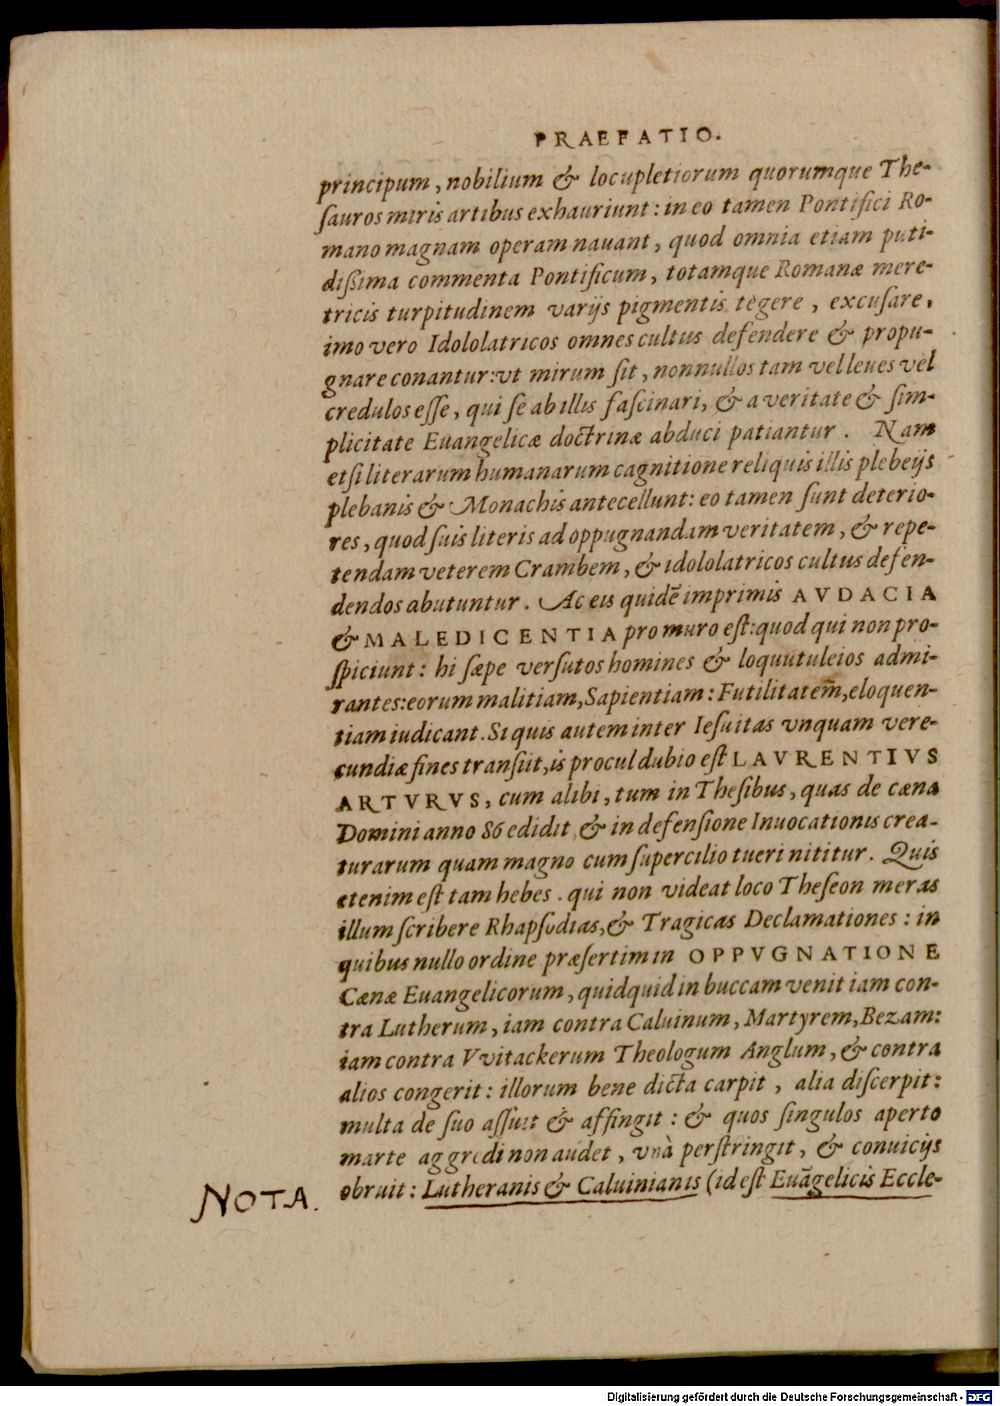 PRAEFATIO.
principum, nobilium & locupletiorum quorumque The-
ſauros miris artibus exhauriunt: in eo tamen Pontifici Ro-
mano magnam operam nauant, quod omnia etiam puti-
dißima commenta Pontificum, totamque Romanæ mere-
tricis turpitudinem varijs pigmentis tegere, excuſare,
imo vero Idololatricos omnes cultus defendere & propu-
gnare conantur: vt mirum ſit, nonnullos tam vel leues vel
credulos eſſe, qui ſe ab illis faſcinari, & a veritate & ſim-
plicitate Euangelicæ doctrinæ abduci patiantur. Nam
etſi literarum humanarum cagnitione reliquis illis plebeijs
plebanis & Monachis antecellunt: eo tamen ſunt deterio-
res, quod ſuis literis ad oppugnandam veritatem, & repe-
tendam veterem Crambem, & idololatricos cultus defen-
dendos abutuntur. Ac eis quidē imprimis AVDACIA
& MALEDICENTIA pro muro eſt: quod qui non pro-
ſpiciunt: hi ſæpe verſutos homines & loquutuleios admi-
rantes: eorum malitiam, Sapientiam: Futilitatem̄, eloquen-
tiam iudicant. Si quis autem inter Ieſuitas vnquam vere-
cundiæ fines tranſiit, is procul dubio eſt LAVRENTIVS
ARTVRVS, cum alibi, tum in Theſibus, quas de cæna
Domini anno 86 edidit, & in defenſione Inuocationis crea-
turarum quam magno cum ſupercilio tueri nititur. Quis
etenim eſt tam hebes. qui non videat loco Theſeon meras
illum ſcribere Rhapſodias, & Tragicas Declamationes: in
quibus nullo ordine præſertim in OPPVGNATIONE
Cænæ Euangelicorum, quidquid in buccam venit iam con-
tra Lutherum, iam contra Caluinum, Martyrem, Bezam:
iam contra Vvitackerum Theologum Anglum, & contra
alios congerit: illorum bene dicta carpit, alia diſcerpit:
multa de ſuo aſſuit & affingit: & quos ſingulos aperto
marte aggredi non audet, vnà perſtringit, & conuicijs
obruit: Lutheranis & Caluinianis (id eſt Euāgelicis Eccle-
NOTA.
Digitalisierung gefördert durch die Deutsche Forschungsgemeinschaft - DFG